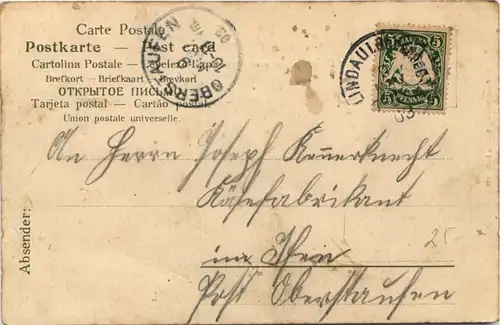 Carte Postale
Postkarte — Post card
Cartolina Postale —
Brefkort — Briefkaart — Brevkort
ОТКРЫТОЕ ПИСЬМО
Tarjeta postal — Cartão postal
Union postale universelle.
OBERSTAUFEN
LINDAU
03
5 5
PFENNIG
An Herrn Joseph Kennerknecht
Käsefabrikant
im Then
Post Oberstaufen
25
Absender: